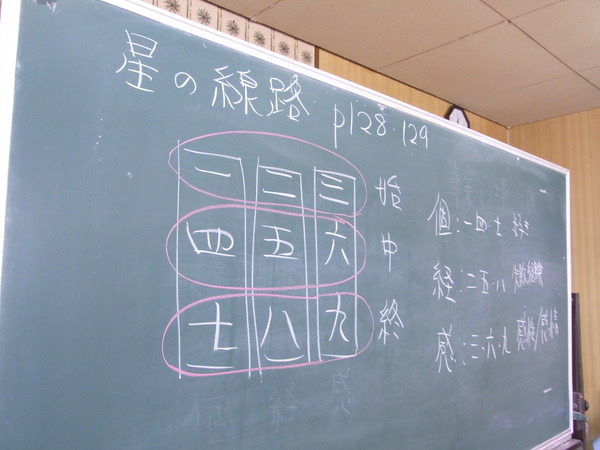 星の線路 p128・129
一 二 三 始
四 五 六 中
七 八 九 終
個:一四・七 好き
経:二五・八 失敗経験
感:三・六・九